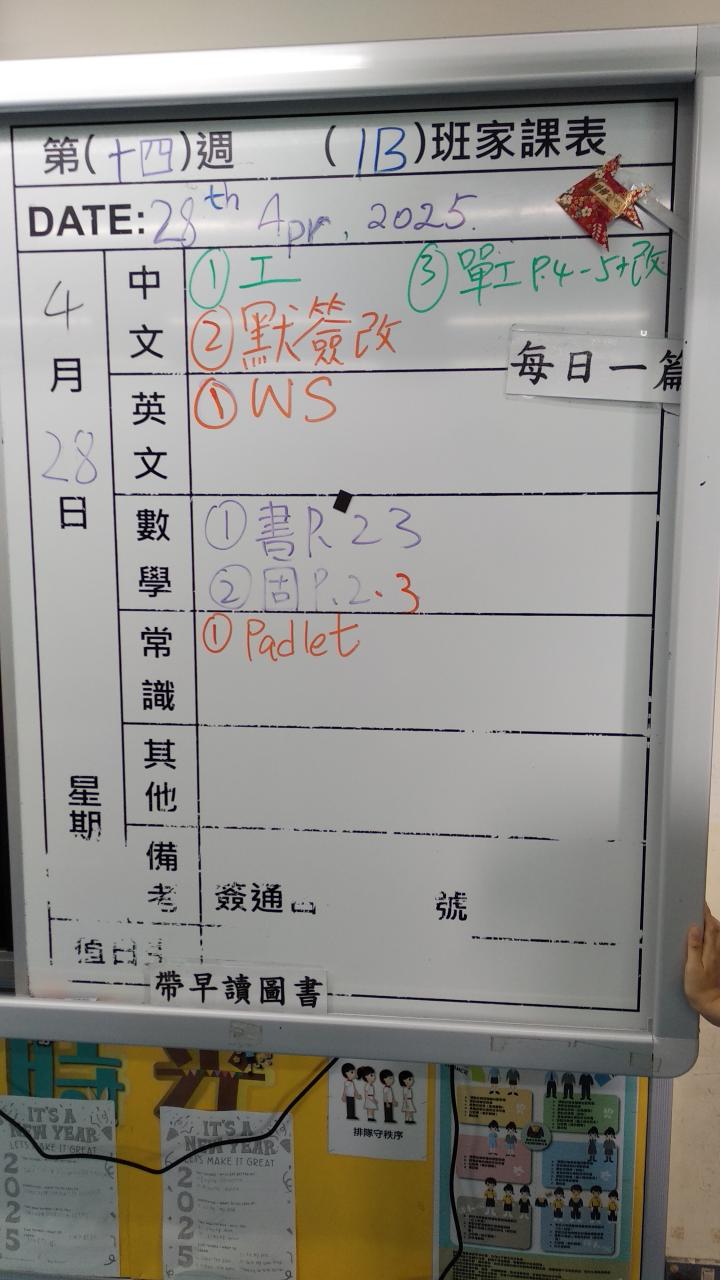 第(十四)週 (1B)班家課表
DATE: 28th Apr, 2025.
4月28日
星期
中文
①工 ③單工P.4-5+改
②默簽改
每日一篇
英文
①WS
數學
①書P.23
②固P.2.3
常識
①Padlet
其他
備考
簽通 號
值日
帶早讀圖書
時光
IT'S A NEW YEAR
LET'S MAKE IT GREAT
2025
IT'S A NEW YEAR
LET'S MAKE IT GREAT
2025
排隊守秩序